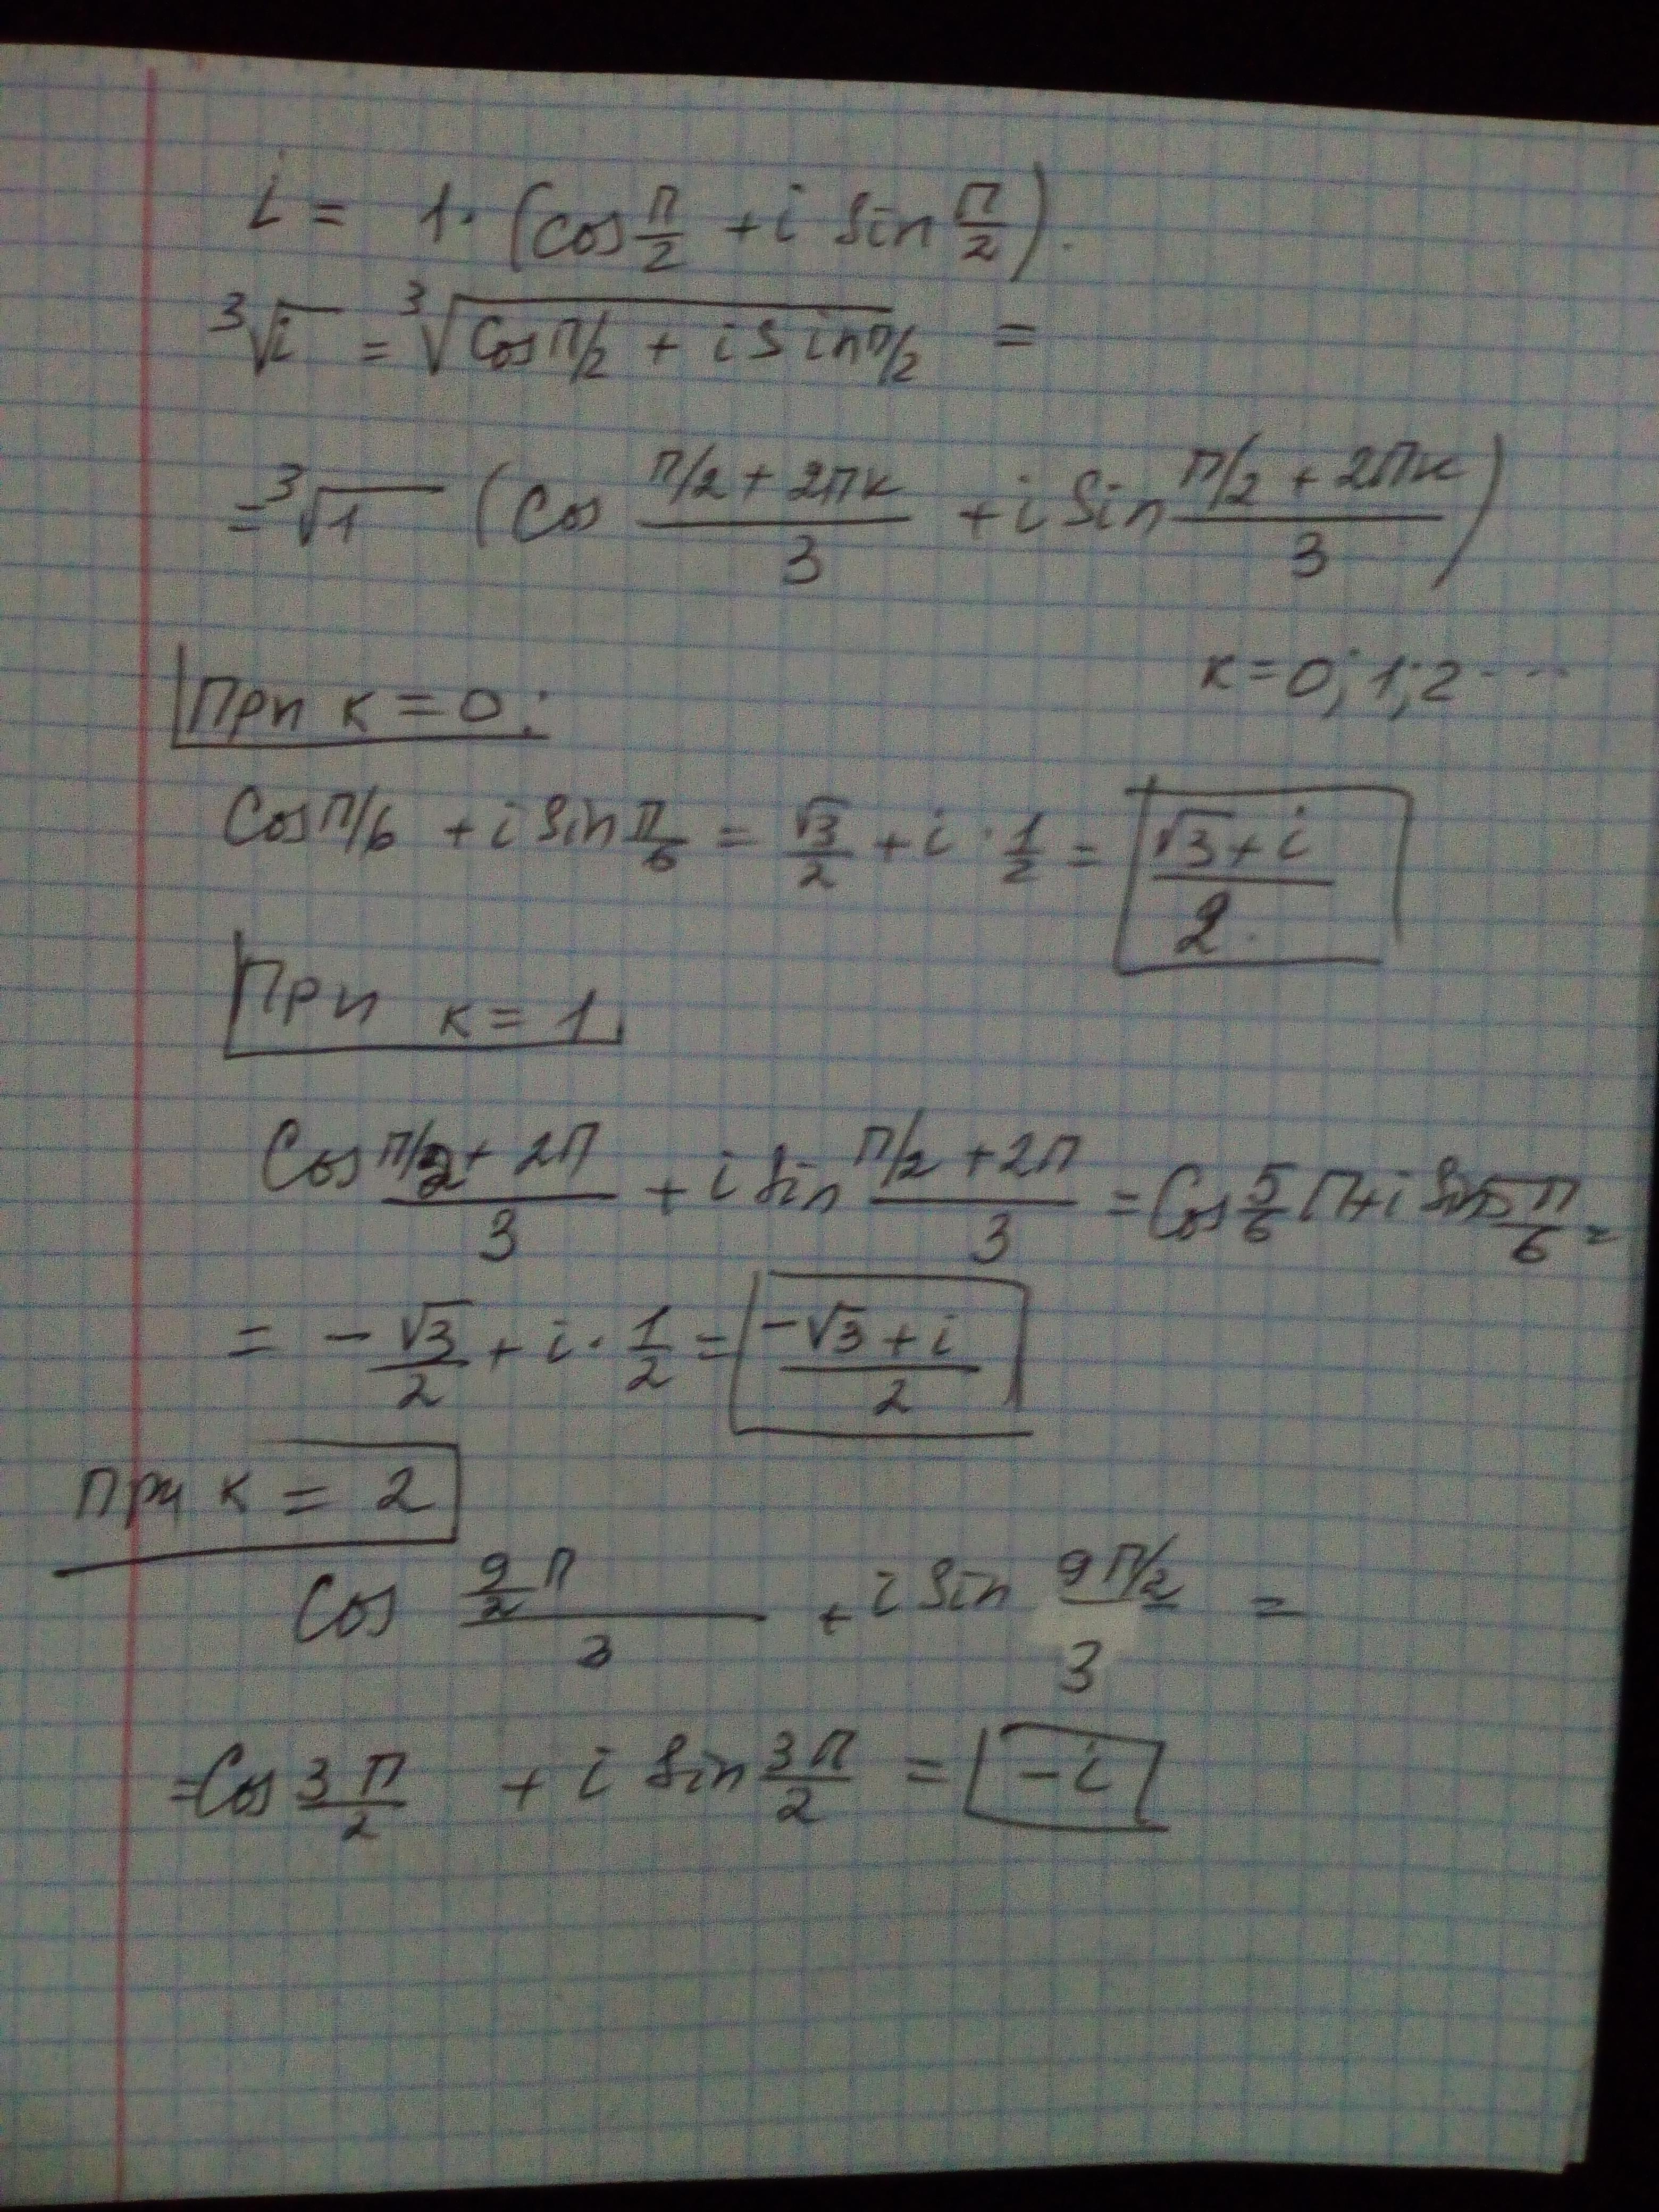 i = 1· (cos π/2 + i sin π/2).
³√i = ³√(cos π/2 + i sin π/2) =
= ³√1 (cos (π/2 + 2πk)/3 + i sin (π/2 + 2πk)/3)
k = 0; 1; 2 ...
При k = 0:
cos π/6 + i sin π/6 = √3/2 + i · 1/2 = (√3 + i)/2.
При k = 1.
cos (π/2 + 2π)/3 + i sin (π/2 + 2π)/3 = cos 5/6 π + i sin 5π/6 =
= - √3/2 + i · 1/2 = (-√3 + i)/2
при k = 2
cos (9/2 π)/3 + i sin (9π/2)/3 =
= cos 3π/2 + i sin 3π/2 = -i